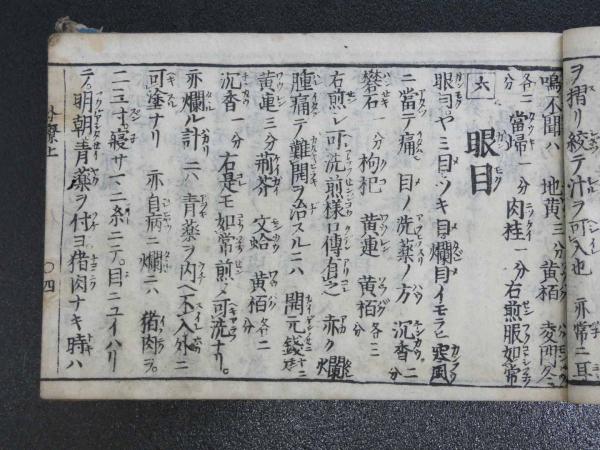 ヲ摺リ絞テ汁ヲ可入也 亦常ニ耳
鳴不聞ハ 地黄三分 黄栢 麦門冬
各二分 當帰一分 肉桂一分 右煎服如常
六 眼目
眼目ヤミ目ツキ目爛目イモラヒ 風
ニ當テ痛 目ノ洗薬ノ方 沉香二分
礬石一分 枸杞 黄連 黄栢各二分
右煎シ可洗煎様口傳有之 赤ク爛
腫痛テ難開ヲ治スルニハ 開元錢
黄連三分 荊芥 文蛤 黄栢各二
沉香一分 右是モ如常煎メ可洗ナリ。
亦爛ル計ニハ 青薬ヲ内ヘ不入外ニ
可塗ナリ 亦自病ニ爛ニハ 猪肉ヲ。
二三寸寝サマニ糸ニテ。目ニユイハリ
テ。明朝青薬ヲ付ヨ猪肉ナキ時ハ
四